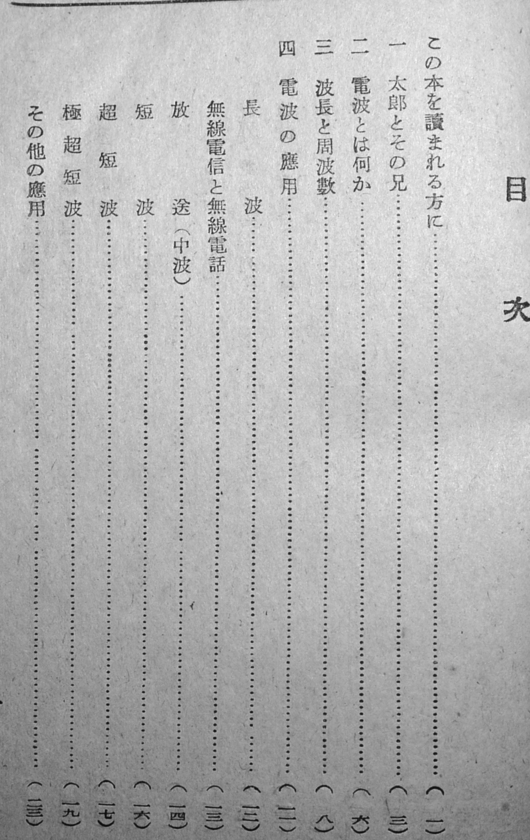 目次
この本を讀まれる方に……(一)
一 太郎とその兄……(三)
二 電波とは何か……(六)
三 波長と周波數……(八)
四 電波の應用……(一一)
長波……(一二)
無線電信と無線電話……(一三)
放送(中波)……(一四)
短波……(一六)
超短波……(一七)
極超短波……(一九)
その他の應用……(二三)